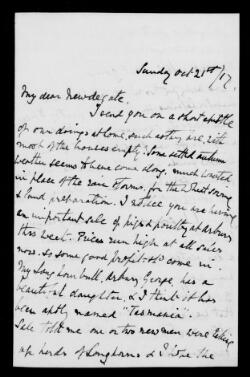 Sunday Oct 21st/17.
My dear Newdegate.
I send you on a short epistle
of our doings at home, such as they are, with
most of the houses empty. Some settled autumn
weather seems to have come along, much wanted
in place of the rain storms, for the wheat sowing
& land preparation. I notice you are having
an important sale of pigs & poultry at Arbury
this week. Prices run high at all sales
now. So some good profit shd come in.
My Longhorn bull, Arbury George, has a
beautiful daughter, & I think it has
been aptly named "Tasmania".
Sale told me one or two new men were taking
up herds of Longhorns & I see the